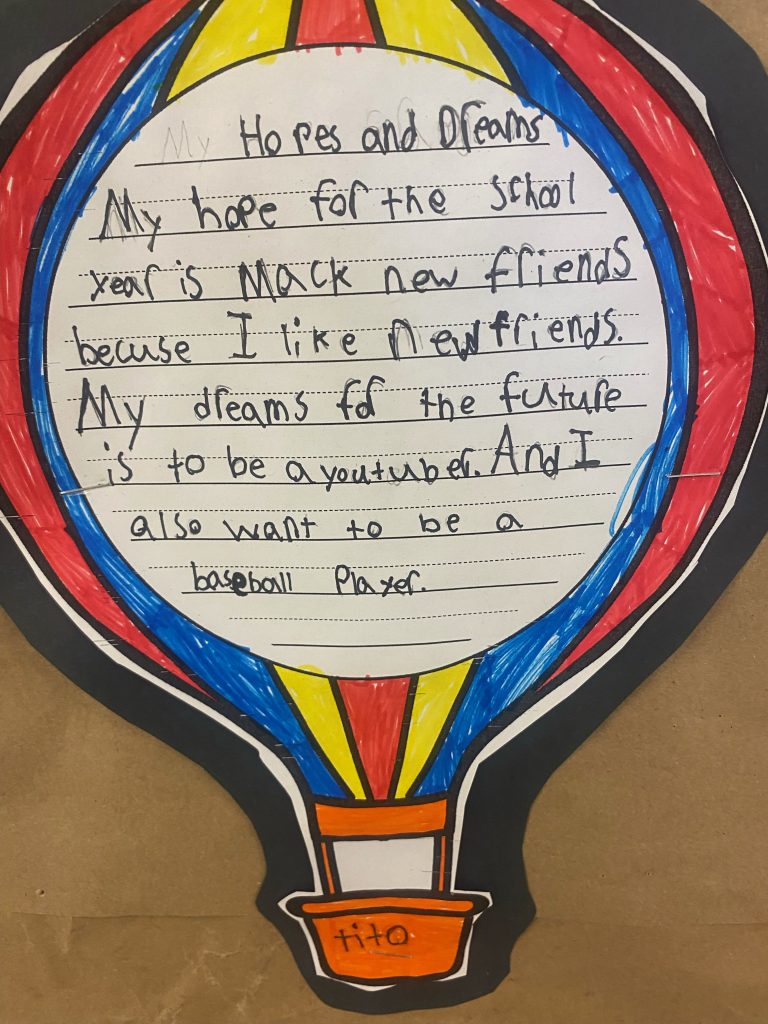 My Hopes and Dreams
My hope for the school
year is Mack new friends
becuse I like new friends.
My dreams for the future
is to be a youtuber. And I
also want to be a
baseball Player.
tito